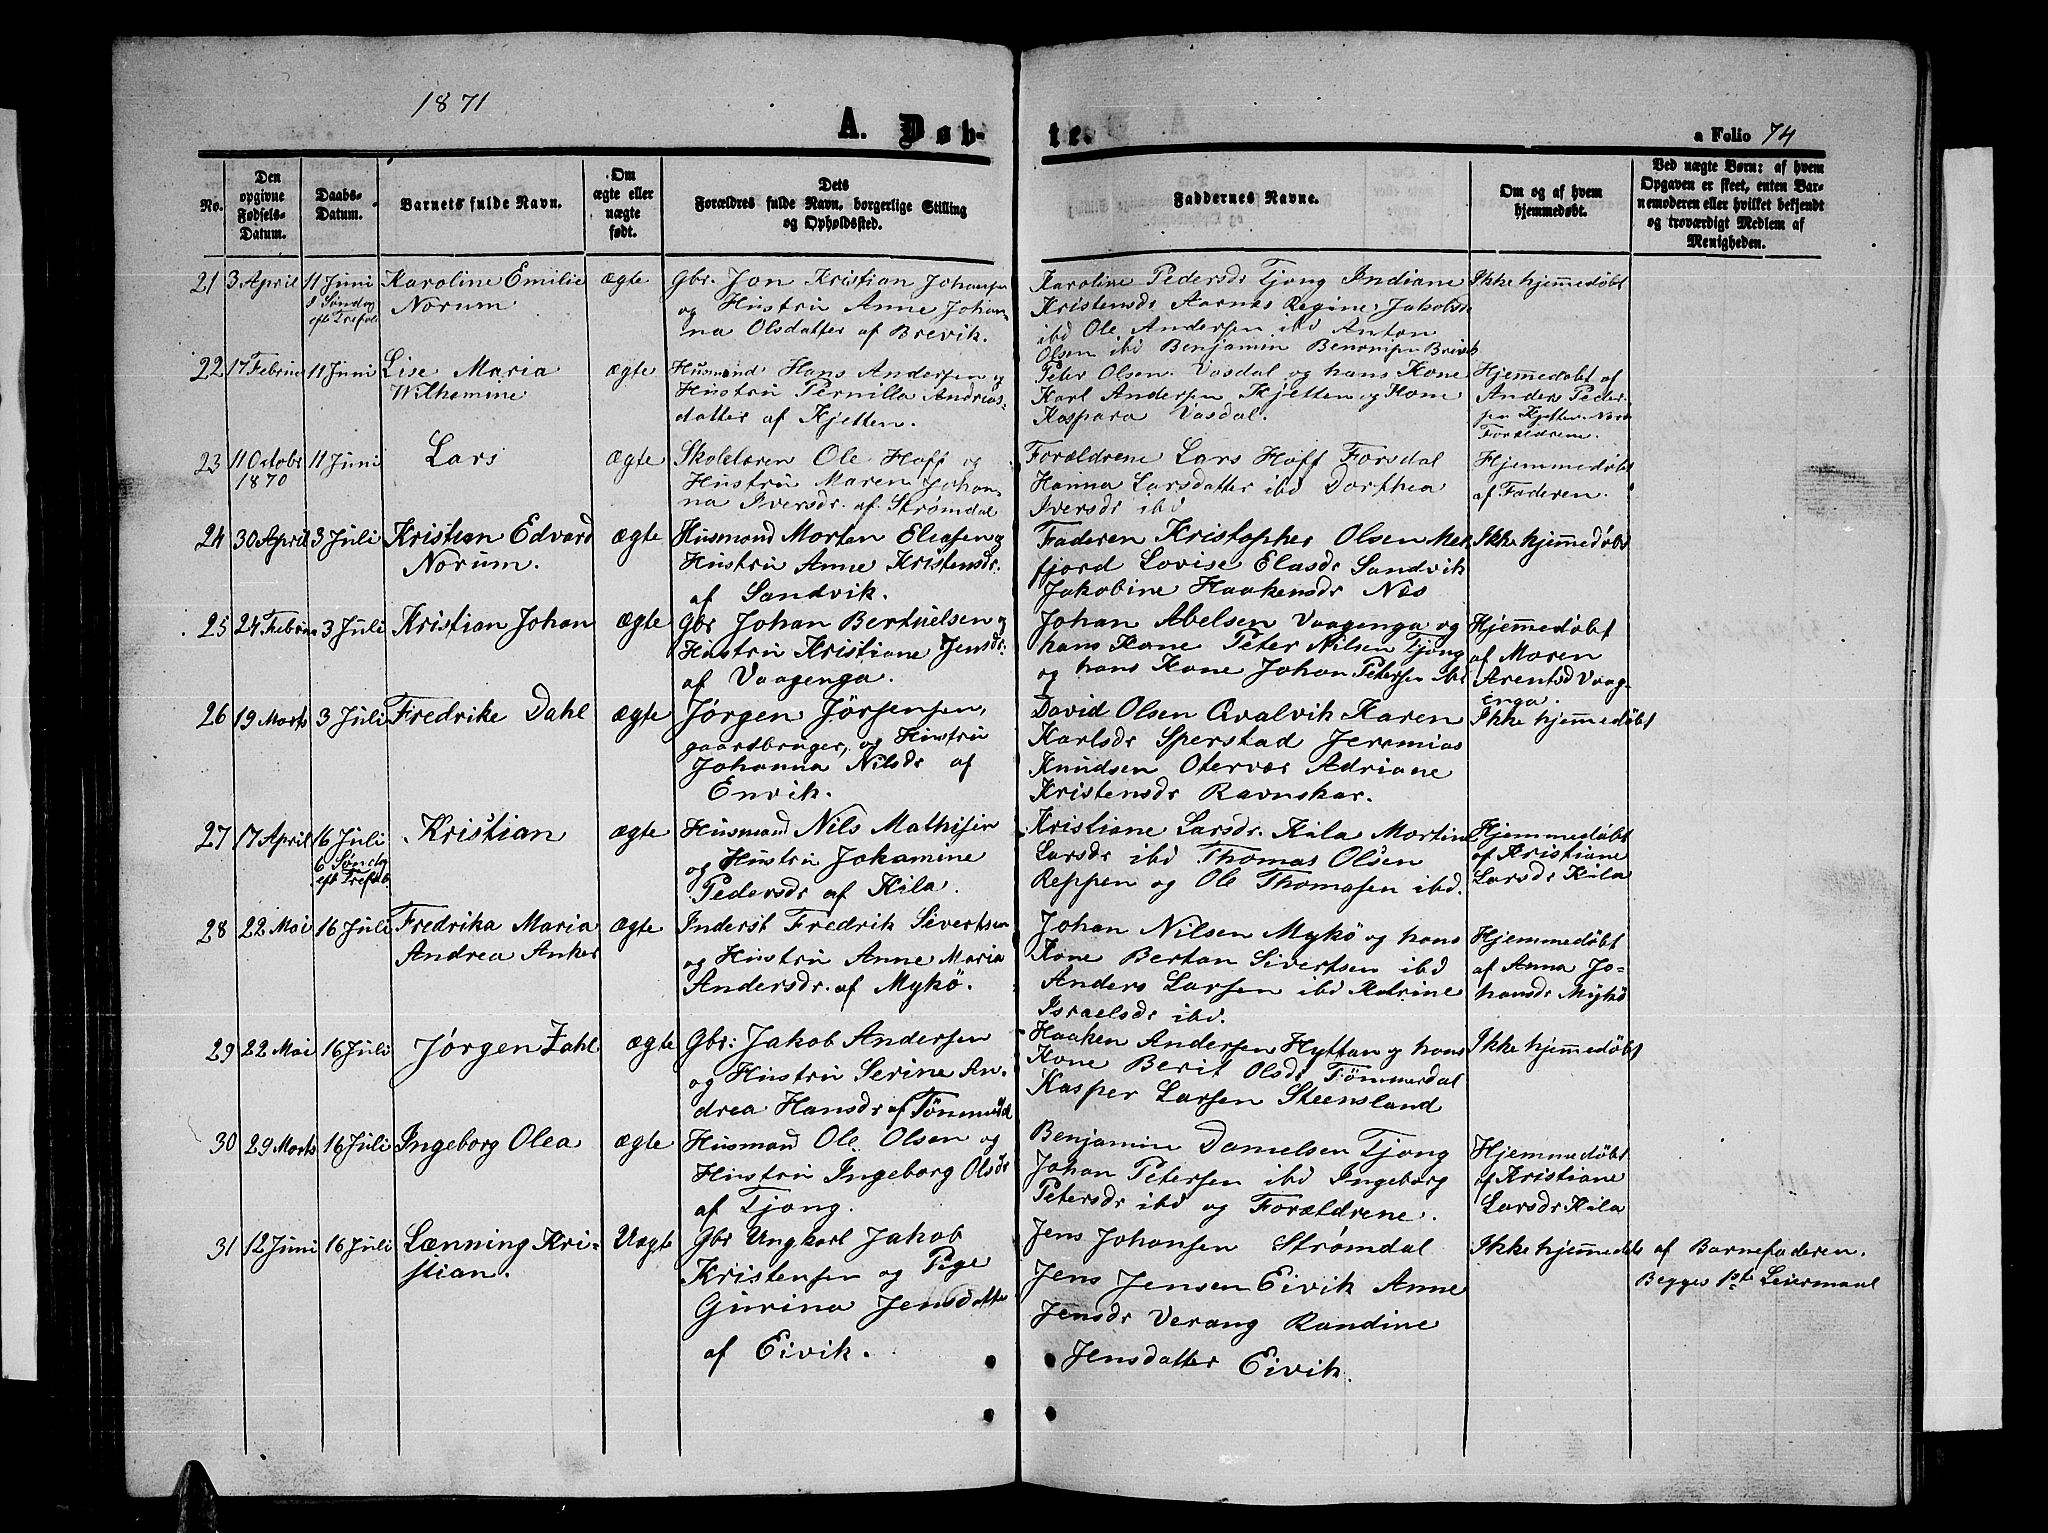 1871
A. Døbte.
a Folio 74
No.
Den opgivne Fødsels-Datum.
Daabs-Datum.
Barnets fulde Navn.
Om ægte eller uægte født.
Dets Forældres fulde Navn, borgerlige Stilling og Opholdssted.
Faddernes Navne.
Om og af hvem hjemmedøbt.
Ved uægte Børn: af hvem Opgaven er skeet, enten Barnemoderen eller hvilket bekjendt og troværdigt Medlem af Menigheden.
21 3 April 11 Juni Karoline Emilie ægte Gbr. Jon Kristian Johansen Karoline Pedersdr Tjong Indiane Ikke hjemmedøbt
1 Søndag eft Trefol Norum og Hustru Anne Johan- Kristensdr Aarnes Regine Jakobsdr
na Olsdatter af Brevik. ibd Ole Andersen ibd Anton
Olsen ibd Benjamin
22 17 Februar 11 Juni Lise Maria ægte Husmand Hans Andersen og Peter Olsen Vasdal og hans Kone Hjemmedøbt af
Wilhemine Hustru Pernilla Andrias- Karl Andersen Kjetten og Kone Anders Peder-
datter af Kjetten. Kaspara Vasdal. sen Kjetten.
Forældrene.
23 11 Octobr 11 Juni Lars ægte Skolelæren Ole Hoff og Forældrene Lars Hoff Forsdal Hjemmedøbt
1870 Hustru Maren Johan- Hanna Larsdatter ibd Dorthea af Faderen.
na Iversdr. af Strømdal Iversdr ibd
24 30 April 3 Juli Kristian Edvard ægte Husmand Morten Eliasen og Faderen Kristopher Olsen Mel Ikke hjemmedøbt
Norum. Hustru Anne Kristensdr. fjord Lovise Elasdr Sandvik
af Sandvik. Jakobine Haakensdr Næs
25 24 Februar 3 Juli Kristian Johan ægte Gbr Johan Bertuelsen og Johan Abelsen Vaagenga og Hjemmedøbt
Hustru Kristiane Jensdr. hans Kone Peter Nilsen Tjong af Maren
af Vaagenga. og hans Kone Johan Petersen ibd Arentsd Vaag-
enga.
26 19 Marts 3 Juli Fredrike Dahl ægte Jørgen Jørgensen, David Olsen Qvalvik Karen Ikke hjemmedøbt
gaardbruger, og Hustru Karlsdr Sperstad Jeremias
Johanna Nilsdr af Knudsen Otervær Adriane
Envik. Kristensdr Ravnskar.
27 17 April 16 Juli Kristian ægte Husmand Nils Mathisen Kristiane Larsdr. Kila Martine Hjemmedøbt
6 Søndag eft Trefold og Hustru Johamine Larsdr ibd Thomas Olsen af Kristiane
Pedersdr af Kila. Reppen og Ole Thomasen ibd. Larsdr Kila
28 22 Mai 16 Juli Fredrika Maria ægte Inderst Fredrik Sivertsen Johan Nilsen Mykö og hans Hjemmedøbt
Andrea Anker og Hustru Anne Maria Kone Bertan Sivertsen ibd af Anna Jo-
Andersdr. af Mykö. Anders Larsen ibd Katrine hansdr Mykö
Israelsdr ibd.
29 22 Mai 16 Juli Jørgen Zahl ægte Gbr: Jakob Andersen Haaken Andersen Hyttan og hans Ikke hjemmedøbt
og Hustru Serine An- Kone Berit Olsdr Tömmerdal
drea Hansdr af Tömmerd Kasper Larsen Steensland
30 29 Marts 16 Juli Ingeborg Olea ægte Husmand Ole Olsen og Benjamin Danielsen Tjong Hjemmedøbt
Hustru Ingeborg Olsdr Johan Petersen ibd Ingeborg af Kristiane
af Tjong. Petersdr ibd og Forældrene. Larsdr Kila
31 12 Juni 16 Juli Lænning Kri- Uægte Gbr Ungkarl Jakob Jens Johansen Strømdal Ikke hjemmedøbt af Barnefaderen.
stian. Kristensen og Pige Jens Jensen Eivik Anne Begges 1st Leiermaal
Gurina Jensdatter Jensdr Verang Randine
af Eivik. Jensdatter Eivik.